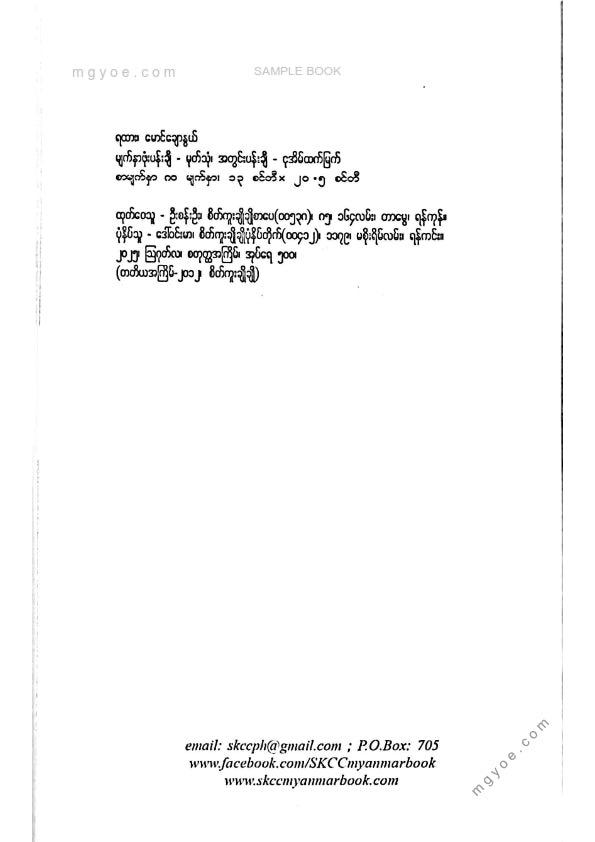 mgyoe.com
SAMPLE BOOK
ရထား၊ မောင်ချောနွယ်
မျက်နှာဖုံးပန်းချီ - မုတ်သုံ၊ အတွင်းပန်းချီ - ငုအိမ်ထက်မြက်
စာမျက်နှာ ၈၀ မျက်နှာ၊ ၁၃ စင်တီ× ၂၀.၅ စင်တီ
ထုတ်ဝေသူ - ဦးစန်းဦး၊ စိတ်ကူးချိုချိုစာပေ(၀၀၅၃၈)၊ ၈၅၊ ၁၆၄လမ်း၊ တာမွေ၊ ရန်ကုန်။
ပုံနှိပ်သူ - ဒေါ်ဝင်းမာ၊ စိတ်ကူးချိုချိုပုံနှိပ်တိုက်(၀၀၄၁၂)၊ ၁၁၇၉၊ မစိုးရိမ်လမ်း၊ ရန်ကင်း။
၂၀၂၅၊ ဩဂုတ်လ၊ စတုတ္ထအကြိမ်၊ အုပ်ရေ ၅၀၀၊
(တတိယအကြိမ်-၂၀၁၂၊ စိတ်ကူးချိုချို)
email: skccph@gmail.com ; P.O.Box: 705
www.facebook.com/SKCCmyanmarbook
www.skccmyanmarbook.com
mgyoe.com